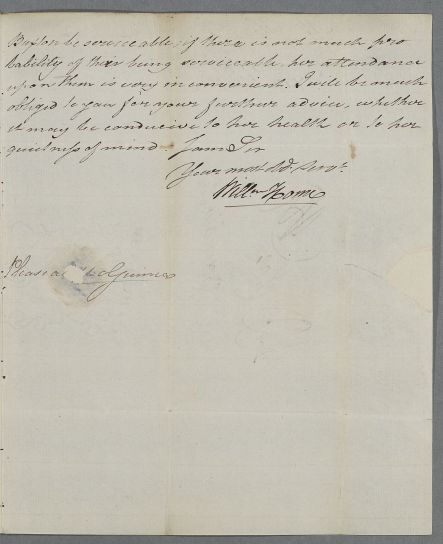 Buxton be serviceable; if there is not much pro
bability of their being serviceable, her attendance
upon them is very inconvenient. I will be much
obliged to you for your further advice, whether
it may be conducive to her health or to her
quietness of mind. I am Sir
Your most Obt. Servt.
Willm Home
Please a Guinea